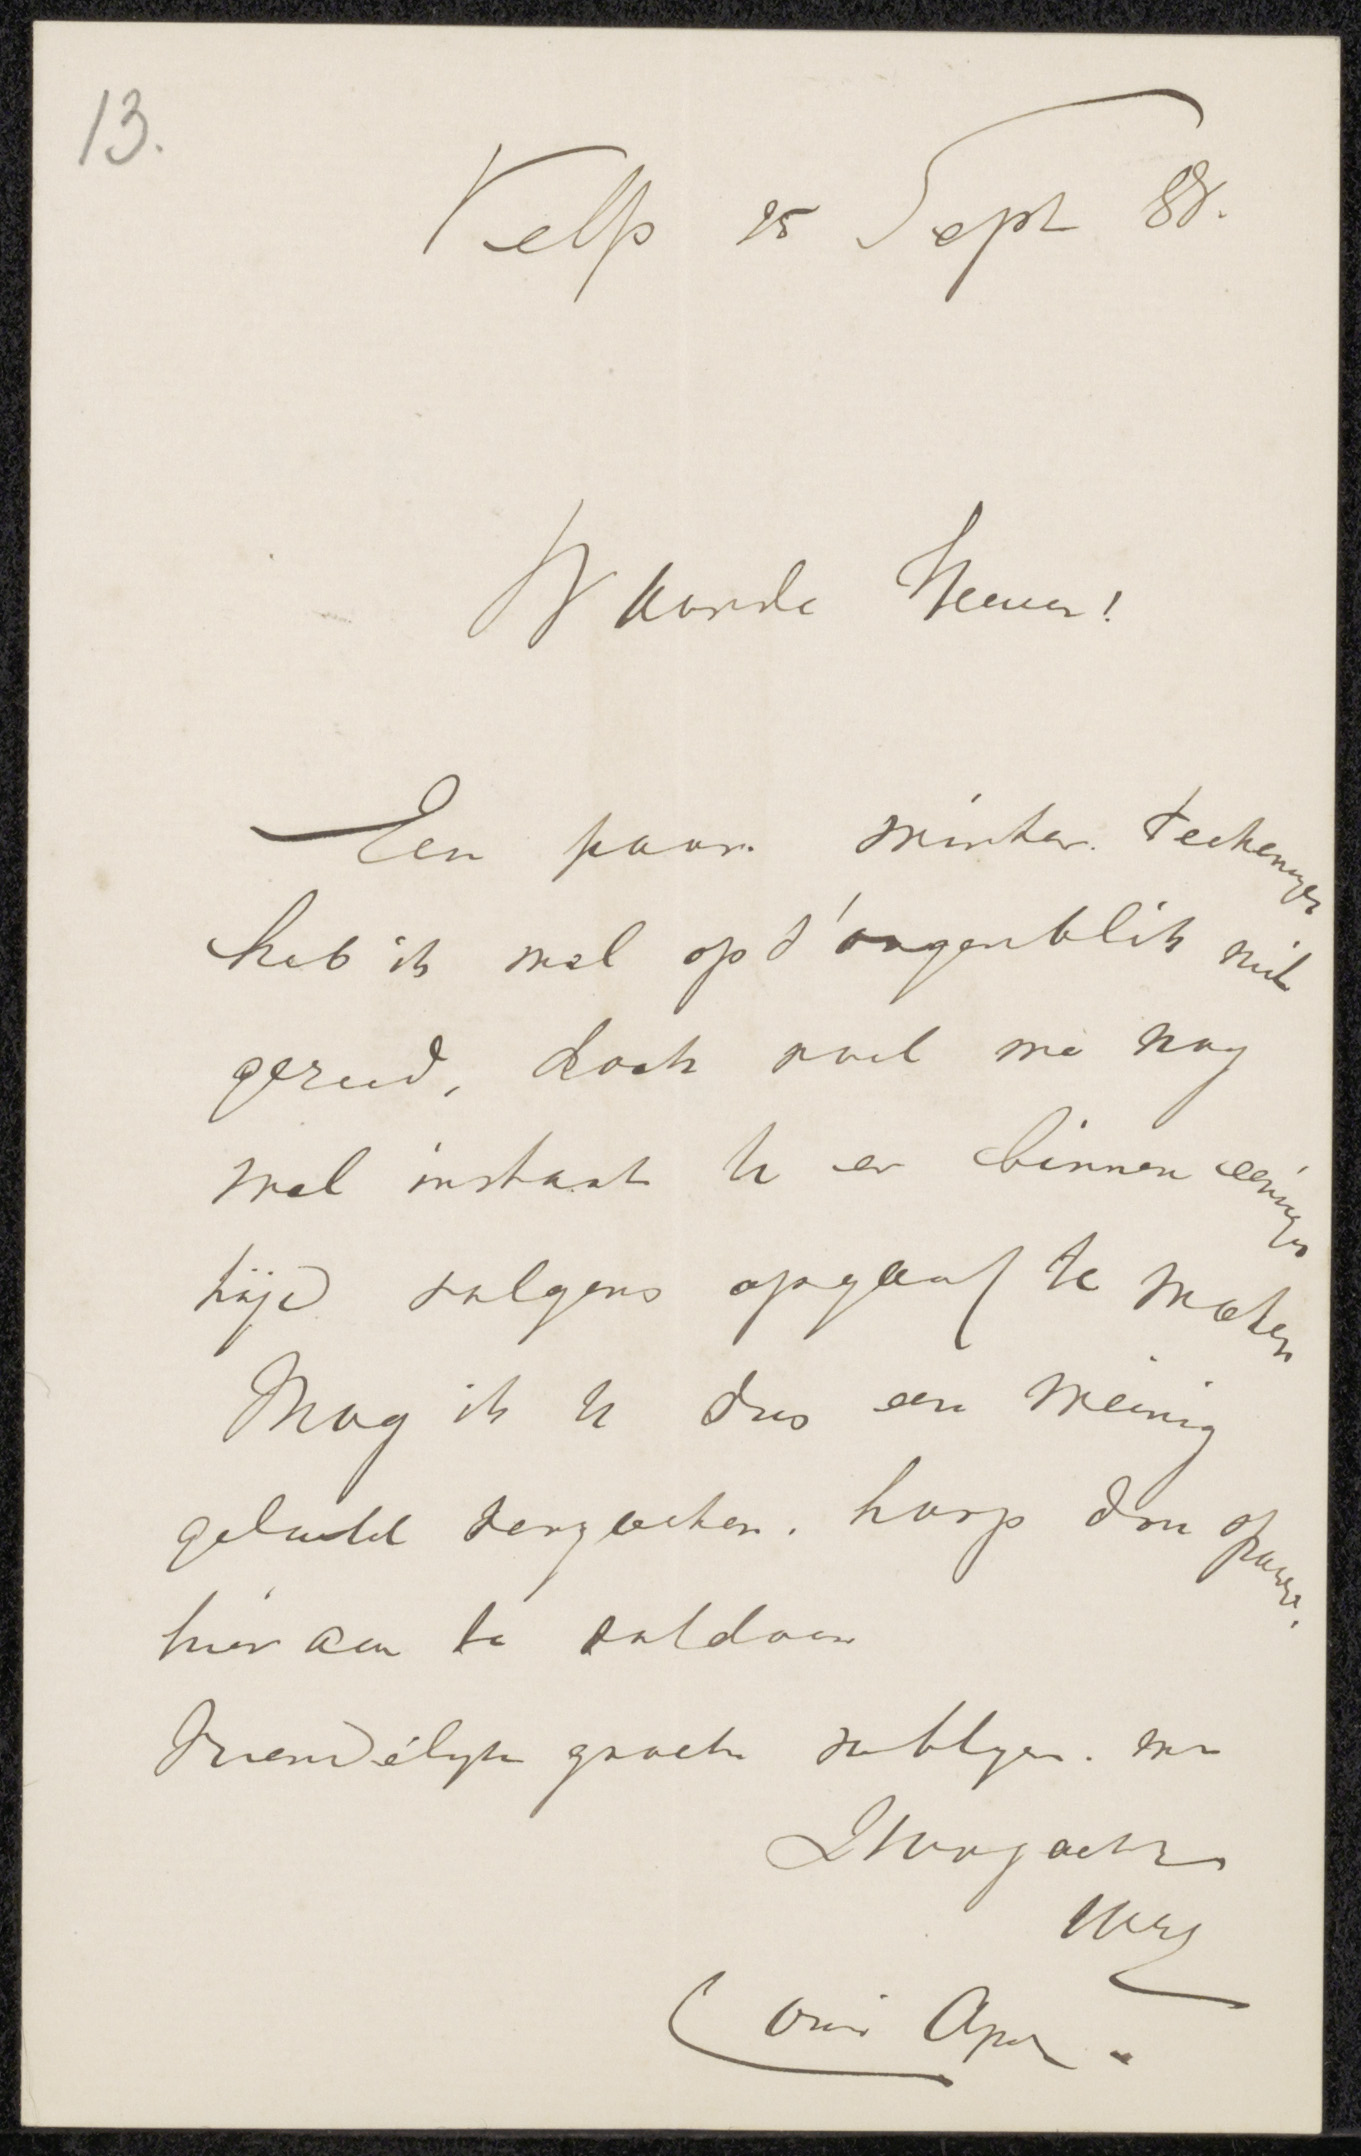 13.
Velp 25 Sept 88.
Waarde Heeren!
Een paar winter teekeningen
heb ik wel op 't oogenblik niet
gereed, doch voel me nog
wel instaat U er binnen eenigen
tijd volgens opgaaf te maken
Mag ik U dus een weinig
geduld verzoeken. hoop dan
hier aan te voldoen
Vriendelijk groete verblyve. me
Hoogacht
Louis Apol.